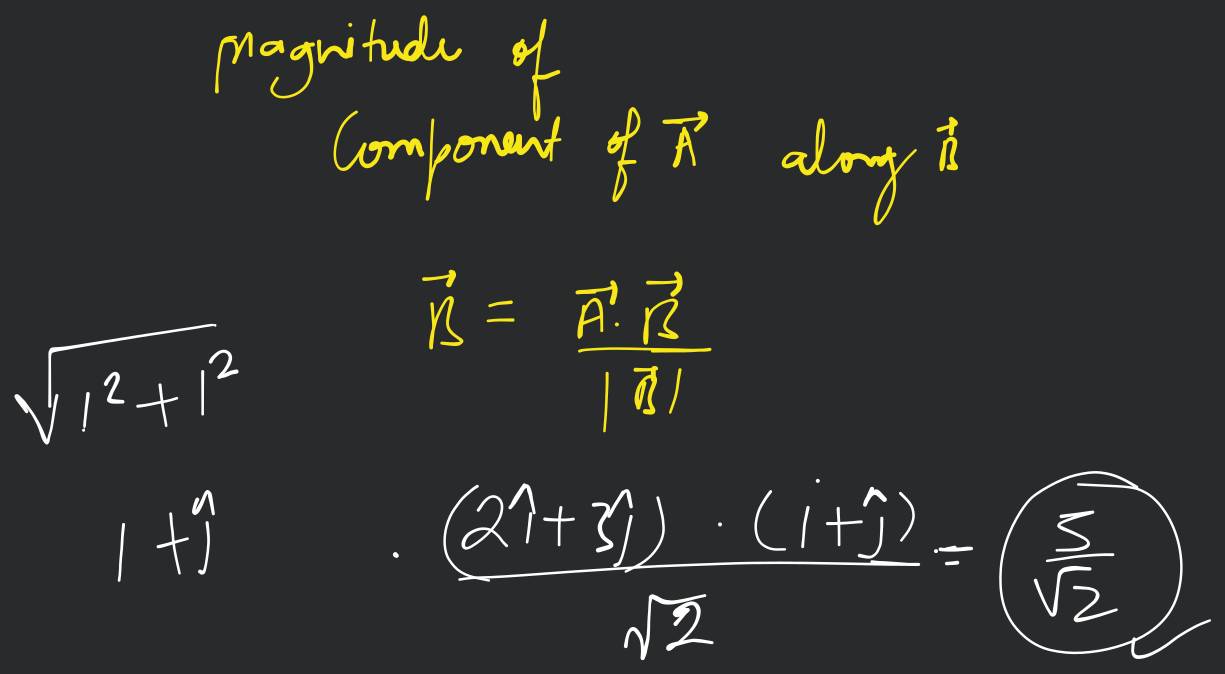 Magnitude of
Component of A⃗ along B⃗
B⃗ = A⃗ · B⃗ / |B⃗|
√1² + 1²
i + ĵ
(2î + 3ĵ) · (i + ĵ) / √2 = 5/√2